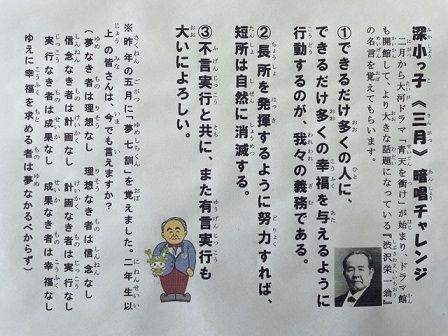 深小っ子《三月》暗唱チャレンジ
二月から大河ドラマ「青天を衝け」が始まり、ドラマ館
も開館して、より大きな話題になっている『渋沢栄一翁』
の名言を覚えてもらいます。
①できるだけ多くの人に、
できるだけ多くの幸福を与えるように
行動するのが、我々の義務である。
②長所を発揮するように努力すれば、
短所は自然に消滅する。
③不言実行と共に、また有言実行も
大いによろしい。
※昨年の五月に「夢七訓」を覚えました。二年生以
上の皆さんは、今でも言えますか？
(夢なき者は理想なし 理想なき者は信念なし
信念なき者は計画なし 計画なき者は実行なし
実行なき者は成果なし 成果なき者は幸福なし
ゆえに幸福を求める者は夢なかるべからず)